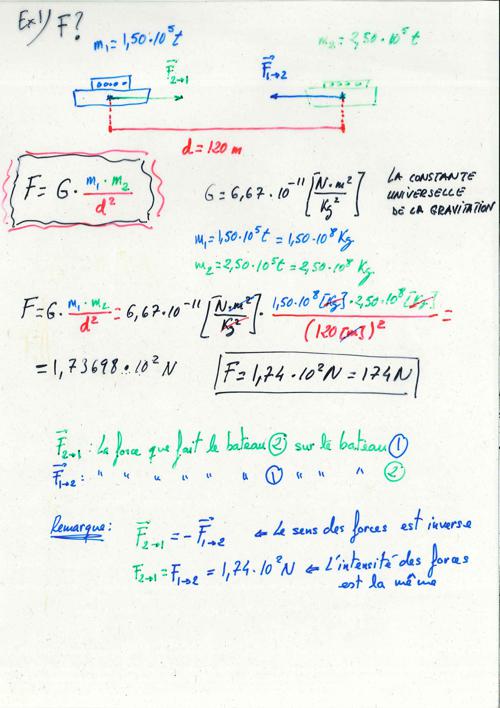 Ex1) F?
m₁ = 1,50·10⁵ t
m₂ = 2,50·10⁵ t
F⃗₂→₁
F⃗₁→₂
d = 120 m
F = G · m₁ · m₂ / d²
G = 6,67 · 10⁻¹¹ [N·m² / Kg²]
LA CONSTANTE
UNIVERSELLE
DE LA GRAVITATION
m₁ = 1,50·10⁵ t = 1,50·10⁸ Kg
m₂ = 2,50·10⁵ t = 2,50·10⁸ Kg
F = G · m₁ · m₂ / d² = 6,67·10⁻¹¹ [N·m² / Kg²] · 1,50·10⁸ [Kg] · 2,50·10⁸ [Kg] / (120 [m])² =
= 1,73698·10² N
F = 1,74·10² N = 174 N
F⃗₂→₁ : La force que fait le bateau ② sur le bateau ①
F⃗₁→₂ : " " " " " " ① " " " ②
Remarque: F⃗₂→₁ = - F⃗₁→₂ ⇐ Le sens des forces est inverse
F₂→₁ = F₁→₂ = 1,74·10² N ⇐ L'intensité des forces
est la même